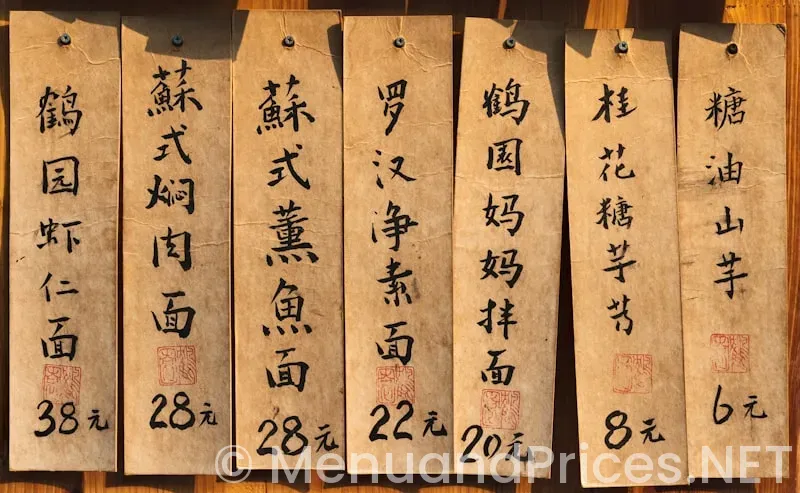 鶴园虾仁面
38元
蘇式焖肉面
28元
蘇式薰魚面
28元
罗汉净素面
22元
鹤園妈妈拌面
20元
桂花糖芋艿
8元
糖油山芋
6元
© MenuandPrices.NET